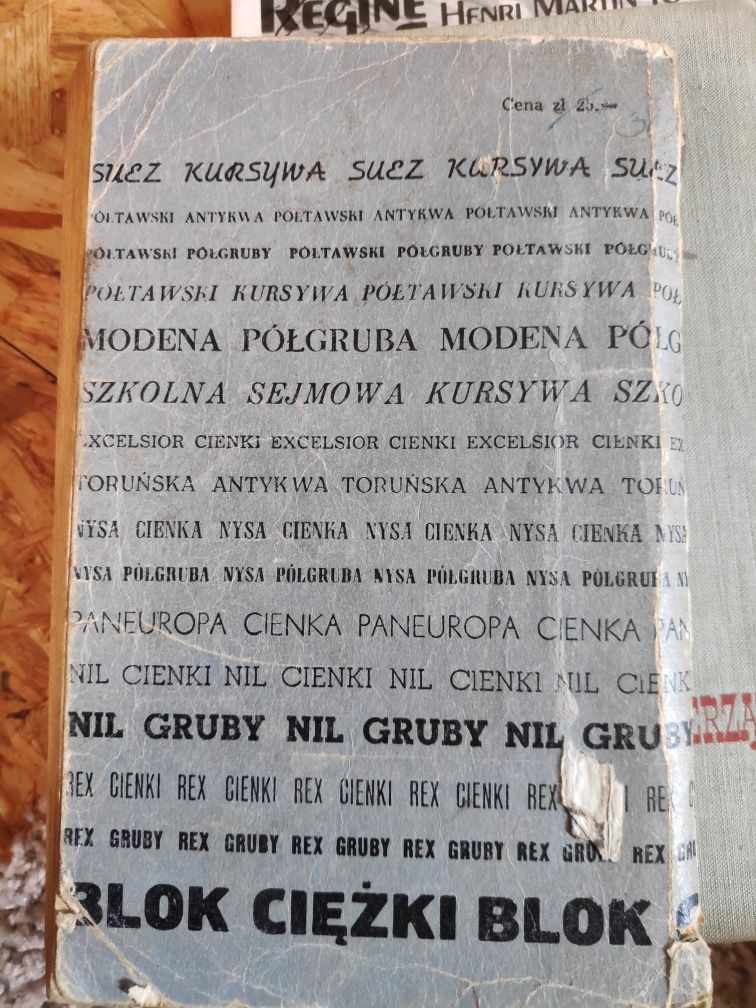 REGINE HENRI MARTIN
Cena zł 25.—
SUEZ KURSYWA SUEZ KURSYWA SUEZ
PÓŁTAWSKI ANTYKWA PÓŁTAWSKI ANTYKWA PÓŁTAWSKI ANTYKWA PÓŁ
PÓŁTAWSKI PÓŁGRUBY PÓŁTAWSKI PÓŁGRUBY PÓŁTAWSKI PÓŁGRUBY
PÓŁTAWSKI KURSYWA PÓŁTAWSKI KURSYWA PÓŁ
MODENA PÓŁGRUBA MODENA PÓŁG
SZKOLNA SEJMOWA KURSYWA SZKO
EXCELSIOR CIENKI EXCELSIOR CIENKI EXCELSIOR CIENKI EX
TORUŃSKA ANTYKWA TORUŃSKA ANTYKWA TORUŃ
NYSA CIENKA NYSA CIENKA NYSA CIENKA NYSA CIENKA NYSA
NYSA PÓŁGRUBA NYSA PÓŁGRUBA NYSA PÓŁGRUBA NYSA PÓŁGRUBA NY
PANEUROPA CIENKA PANEUROPA CIENKA PAN
NIL CIENKI NIL CIENKI NIL CIENKI NIL CIENK
NIL GRUBY NIL GRUBY NIL GRUBY
REX CIENKI REX CIENKI REX CIENKI REX CIENKI REX I REX C
REX GRUBY REX GRUBY REX GRUBY REX GRUBY REX GRUBY REX GRU
BLOK CIĘŻKI BLOK